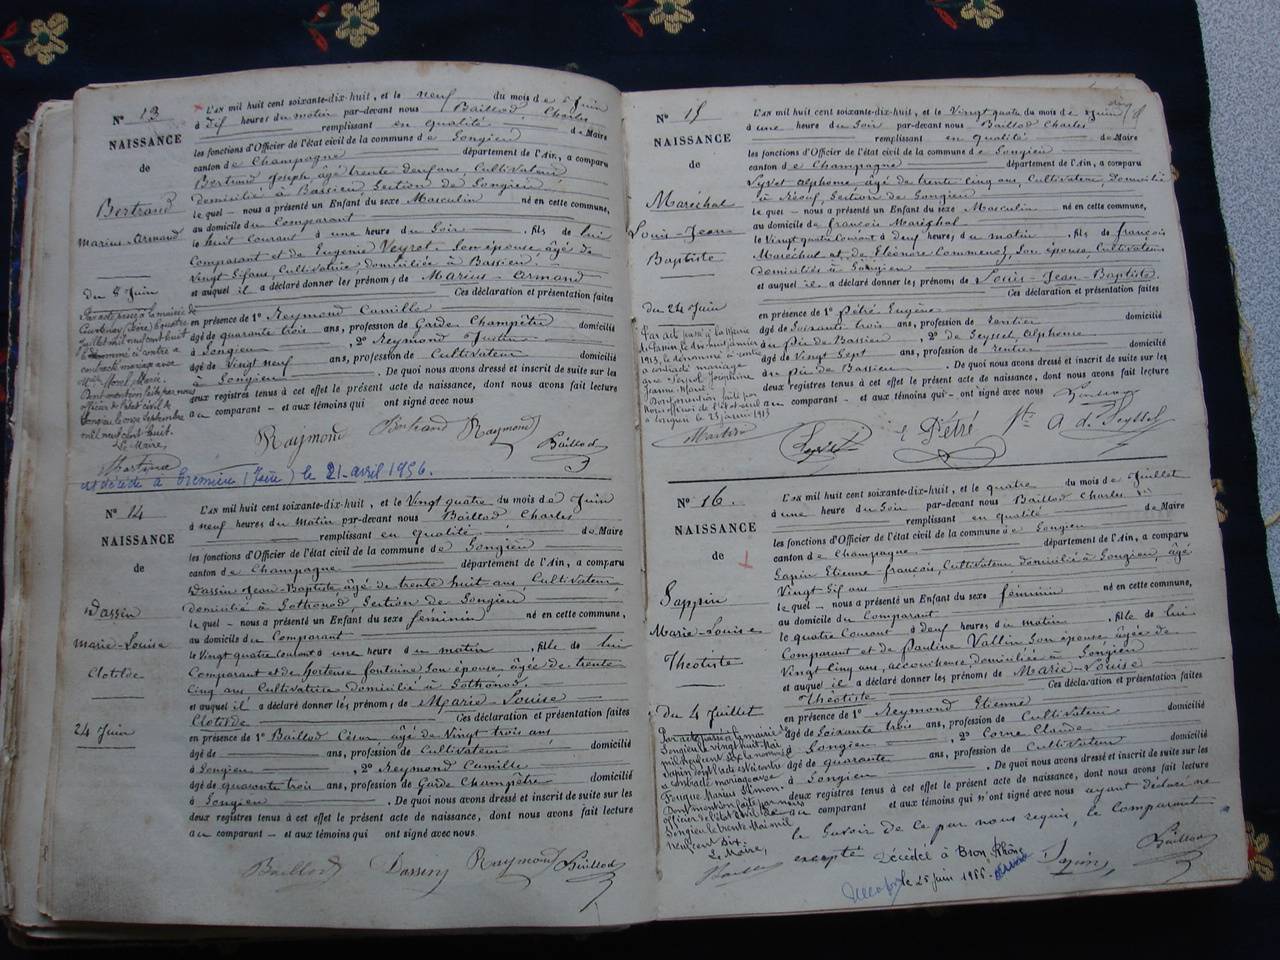 N° 13
NAISSANCE
de
Bertrand
Marius-Armand
du 8 Juin
L'AN mil huit cent soixante-dix-huit, et le neuf du mois de Juin
à dix heures du matin par-devant nous Baillod Charles
remplissant en qualité de Maire
les fonctions d'Officier de l'état civil de la commune de Songieu
canton de Champagne département de l'Ain, a comparu
Bertrand Joseph âgé trente deux ans, Cultivateur
domicilié à Bassieu Section de Songieu
le quel nous a présenté un Enfant du sexe Masculin né en cette commune,
au domicile du Comparant
le huit courant à une heure du Soir, fils de lui
Comparant et de Eugénie Veyrot son épouse, âgée de
vingt Six ans, Cultivatrice, domiciliée à Bassieu.
et auquel il a déclaré donner les prénoms de Marius-Armand
Ces déclaration et présentation faites
en présence de 1° Reymond Camille
âgé de quarante trois ans, profession de Garde Champêtre domicilié
à Songieu, 2° Reymond Justin
âgé de Vingt neuf ans, profession de Cultivateur domicilié
à Songieu. De quoi nous avons dressé et inscrit de suite sur les
deux registres tenus à cet effet le présent acte de naissance, dont nous avons fait lecture
au comparant et aux témoins qui ont signé avec nous
Raymond Bertrand Raymond Baillod
Par acte passé à la mairie de
juillet mil neuf cent huit
contracté mariage avec
Dont mention faite par nous
officier de l'état civil de
Songieu le onze septembre
mil neuf cent huit.
Le Maire,
est décédé à Crémieu (Isère) le 21 avril 1956.
N° 14
NAISSANCE
de
Dassin
Marie-Louise
Clotilde
24 Juin
L'AN mil huit cent soixante-dix-huit, et le Vingt quatre du mois de Juin
à neuf heures du Matin par-devant nous Baillod Charles
remplissant en qualité de Maire
les fonctions d'Officier de l'état civil de la commune de Songieu
canton de Champagne département de l'Ain, a comparu
Dassin Jean-Baptiste âgé de trente huit ans, Cultivateur
domicilié à Sothonod, Section de Songieu
le quel nous a présenté un Enfant du sexe féminin né en cette commune,
au domicile du Comparant
le vingt quatre courant à une heure du matin, fille de lui
Comparant et de hortense fontaine son épouse âgée de trente
cinq ans Cultivatrice domiciliée à Sothonod.
et auquel il a déclaré donner les prénoms de Marie-Louise
Clotilde Ces déclaration et présentation faites
en présence de 1° Baillod César âgé de Vingt trois ans
âgé de ans, profession de Cultivateur domicilié
à Songieu, 2° Reymond Camille
âgé de quarante trois ans, profession de Garde Champêtre domicilié
à Songieu. De quoi nous avons dressé et inscrit de suite sur les
deux registres tenus à cet effet le présent acte de naissance, dont nous avons fait lecture
au comparant et aux témoins qui ont signé avec nous
Baillod Dassin Raymond Baillod
N° 15
NAISSANCE
de
Maréchal
Louis-Jean
Baptiste
du 24 Juin
L'AN mil huit cent soixante-dix-huit, et le Vingt quatre du mois de Juin
à une heure du Soir par-devant nous Baillod Charles
remplissant en qualité de Maire
les fonctions d'Officier de l'état civil de la commune de Songieu
canton de Champagne département de l'Ain, a comparu
Lyvet alphonse âgé de trente cinq ans, Cultivateur, Domicilié
Section de Songieu
le quel nous a présenté un Enfant du sexe Masculin né en cette commune,
au domicile de françois Maréchal
le Vingt quatre Courant à deux heures du matin, fils de françois
Maréchal et de Eléonore Commenoz, son épouse, Cultivateurs
domiciliés à Songieu
et auquel il a déclaré donner les prénoms de Louis-Jean-Baptiste.
Ces déclaration et présentation faites
en présence de 1° Pétré Eugène
âgé de Soixante trois ans, profession de rentier domicilié
au pré de Bassieu, 2° de Seyssel, alphonse
âgé de Vingt Sept ans, profession de rentier domicilié
au pré de Bassieu. De quoi nous avons dressé et inscrit de suite sur les
deux registres tenus à cet effet le présent acte de naissance, dont nous avons fait lecture
au comparant et aux témoins qui ont signé avec nous
E Pétré A de Seyssel
Par acte passé à la Mairie
le dix huit janvier
1913, le dénommé ci-contre
a contracté mariage
Joséphine
Jeanne Marie
Dont mention faite par
Nous officier de l'état civil
à Songieu le 23 janvier 1913
N° 16.
NAISSANCE
de
Sappin
Marie-Louise
Théotiste
du 4 Juillet
L'AN mil huit cent soixante-dix-huit, et le quatre du mois de Juillet
à une heure du Soir par-devant nous Baillod Charles
remplissant en qualité de Maire
les fonctions d'Officier de l'état civil de la commune de Songieu
canton de Champagne département de l'Ain, a comparu
Sapin Etienne-françois, Cultivateur domicilié à Songieu, âgé
Vingt Six ans
le quel nous a présenté un Enfant du sexe féminin né en cette commune,
au domicile du Comparant
le quatre Courant à deux heures du matin, fille de lui
Comparant et de Pauline Vallin son épouse âgée de
Vingt Cinq ans, accoucheuse domiciliée à Songieu
et auquel il a déclaré donner les prénoms de Marie-Louise
Théotiste Ces déclaration et présentation faites
en présence de 1° Reymond Etienne
âgé de Soixante trois ans, profession de Cultivateur domicilié
à Songieu, 2° Corne Claude
âgé de quarante ans, profession de Cultivateur domicilié
à Songieu. De quoi nous avons dressé et inscrit de suite sur les
deux registres tenus à cet effet le présent acte de naissance, dont nous avons fait lecture
au comparant et aux témoins qui n'ont signé avec nous ayant déclaré ne
le savoir de ce par nous requis, le comparant
excepté
Sapin Baillod
Par acte passé à la mairie de
Songieu le vingt huit Mai
mil neuf cent six
a contracté mariage avec
Marius Simon
Dont mention faite par nous
officier de l'état civil de
Songieu le trente Mai mil
neuf cent six.
Le Maire,
Décédée à Bron, Rhône
le 25 juin 1966